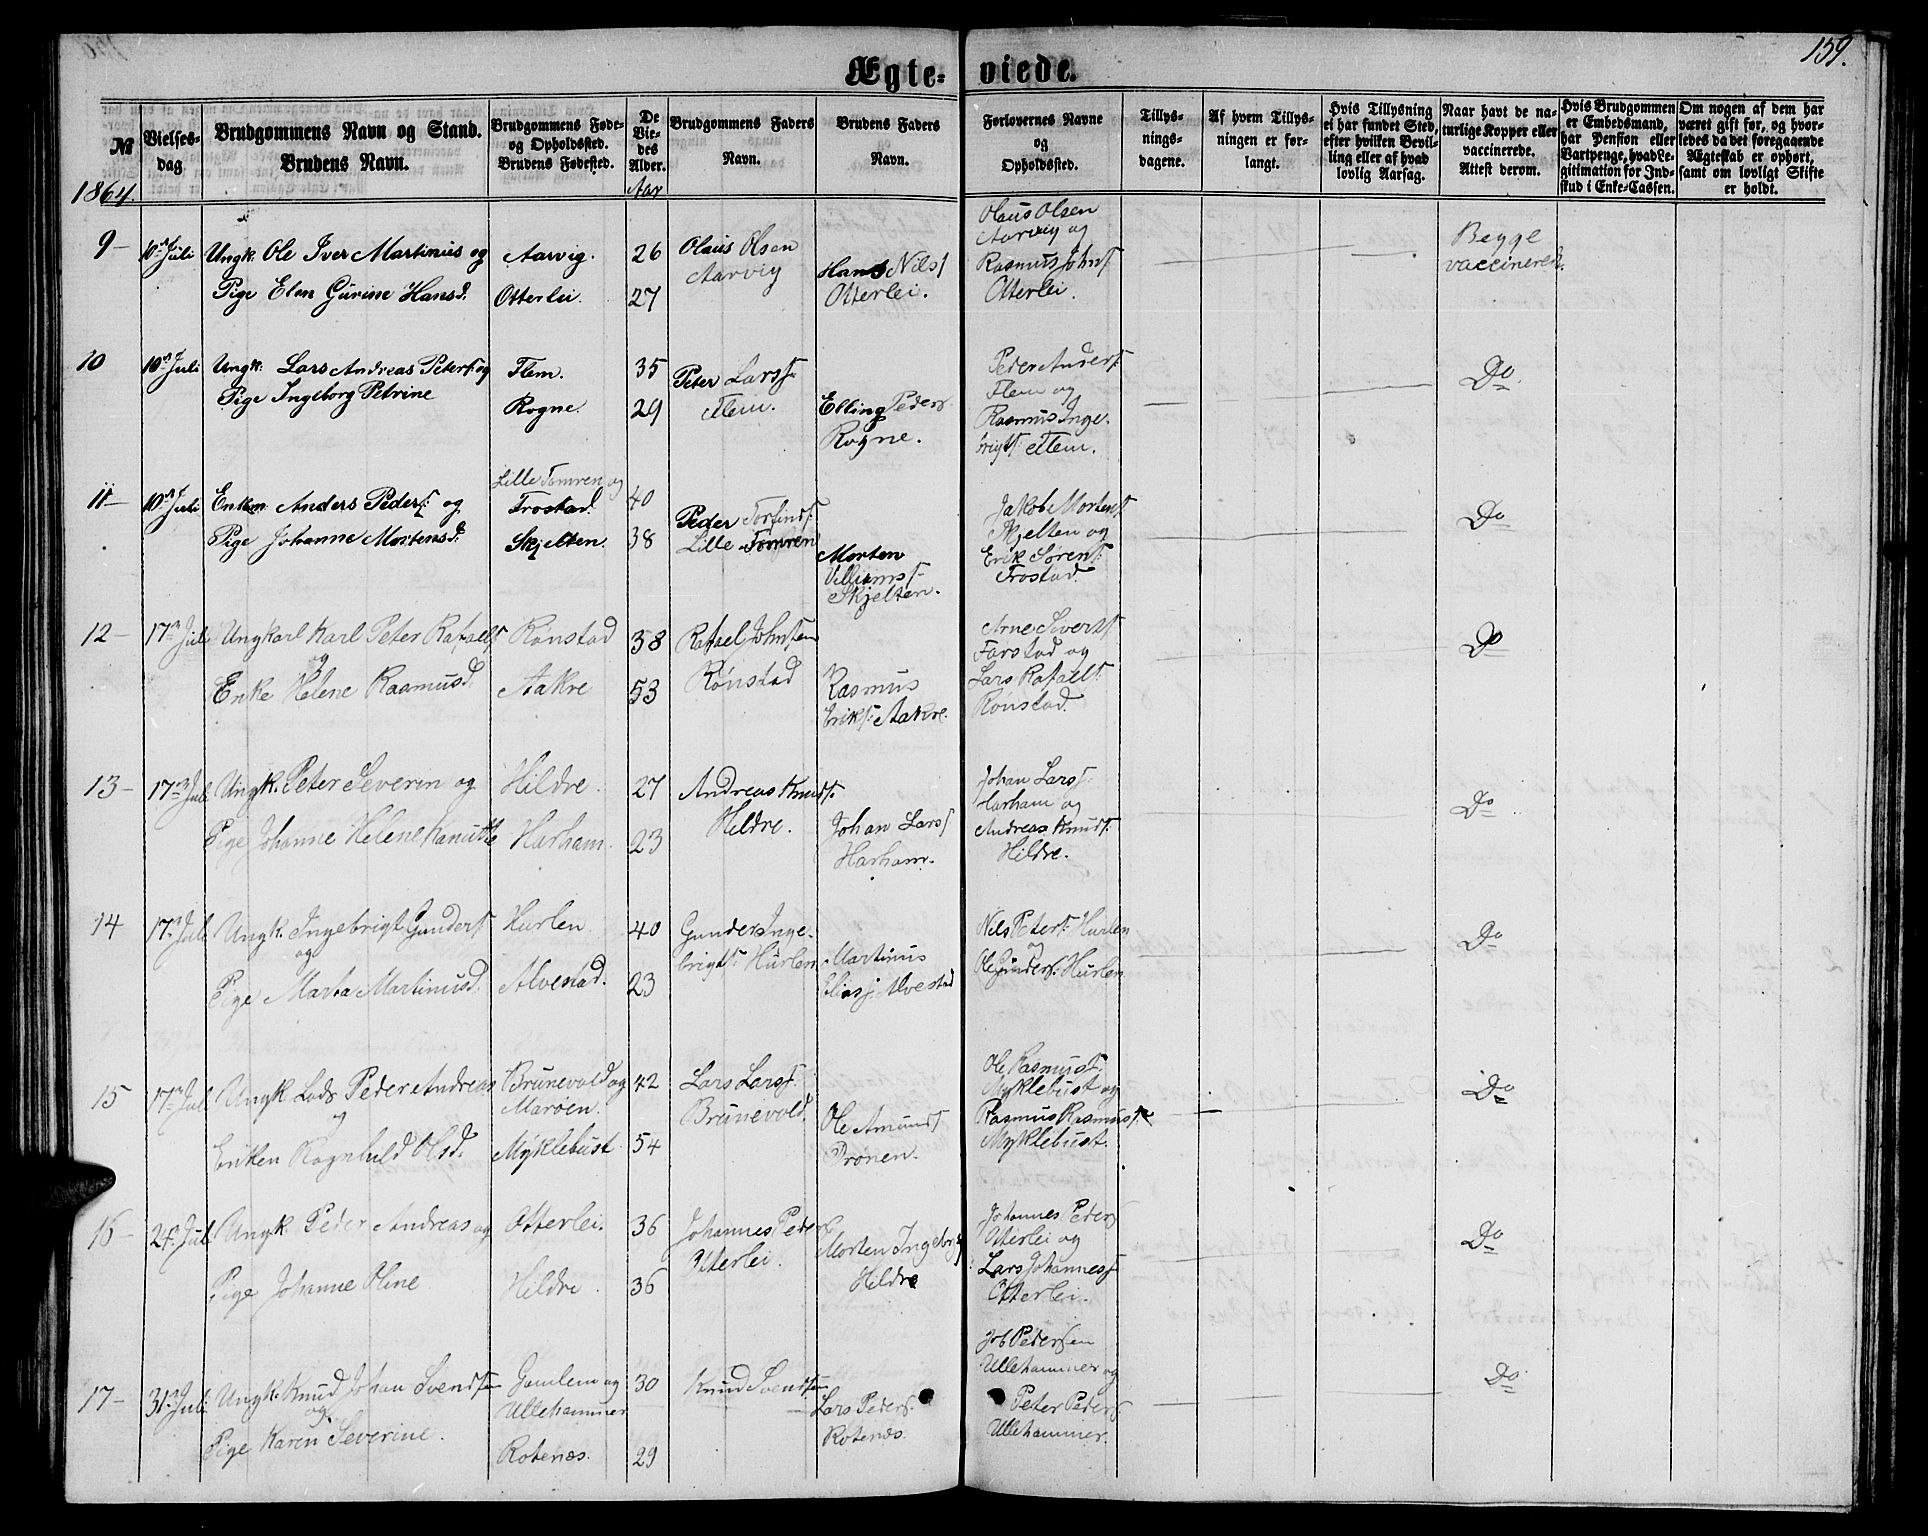 159.
Ægte- viede.
№
Vielses-
dag
Brudgommens Navn og Stand.
Brudens Navn.
Brudgommens Føde-
og Opholdssted.
Brudens Fødested.
De
Vie-
des
Alder.
Aar
Brudgommens Faders
Navn.
Brudens Faders
Navn.
Forlovernes Navne
og
Opholdssted.
Tillys-
nings-
dagene.
Af hvem Tillys-
ningen er for-
langt.
Hvis Tillysning
ei har fundet Sted,
efter hvilken Bevil-
ling eller af hvad
lovlig Aarsag.
Naar havt de na-
turlige Kopper eller
vaccinerede.
Attest derom.
Hvis Brudgommen
er Embedsmand,
har Pension eller
Vartpenge, hvad Le-
gitimation for Ind-
skud i Enke-Cassen.
Om nogen af dem har
været gift før, og hvor-
ledes da det foregaaende
Ægteskab er ophørt,
samt om lovligt Skifte
er holdt.
1864.
9 —
10de Juli
Ungk. Ole Iver Martinus og
Pige Elen Gurine Hansd.
Aarvig.
Otterlei.
26
27
Olaus Olsen
Aarvig
Hans Nils
Otterlei.
Olaus Olsen
Aarvig og
Rasmus Johns
Otterlei.
Begge
vaccinerede.
10
10de Juli
Ungk. Lars Andreas Peters. og
Pige Ingeborg Petrine
Flem.
Rogne.
35
29
Peter Lars
Flem.
Elling Peders
Rogne.
Peder Anders.
Flem og
Rasmus Inge-
brigts. Flem.
Do
11 —
10de Juli
Enkem. Anders Peders. og
Pige Johanne Mortensd.
Lille Tomren og
Frostad.
Skjelten.
40
38
Peder Torfinds.
Lille Tomren
Morten
Villiams
Skjelten.
Jakob Mortens
Skjelten og
Erik Sørens.
Frostad.
Do
12 —
17de Juli
Ungkarl Karl Peter Rafaels
og
Enke Helene Rasmusd.
Rønstad
Aakre
38
53
Rafael Johnsen
Rønstad
Rasmus
Eriks. Aakre.
Arne Siverts
Farstad og
Lars Rafaels.
Rønstad.
Do
13 —
17de Juli
Ungk. Peter Severin og
Pige Johanne Helene Kanutte
Hildre.
Harham.
27
23
Andreas Knuds.
Hildre.
Johan Lars
Harham.
Johan Lars.
Harham og
Andreas Knuds.
Hildre.
Do
14
17de Juli
Ungk. Ingebrigt Gunders
og
Pige Marta Martinusd.
Hurlen
Alvestad.
40
23
Gunder Inge-
brigts. Hurlen
Martinus
Elias. Alvestad
Nils Peters. Hurlen
og
Ole Gunders. Hurlen
Do
15
17de Juli
Ungk. Lods Peder Andreas
og
Enken Ragnhild Olsd.
Brunevold og
Marøen.
Myklebust
42
54
Lars Lars.
Brunevold.
Ole Amunds
Drønen.
Ole Rasmus.
Myklebust og
Rasmus Rasmus.
Myklebust.
Do
16 —
24de Juli
Ungk. Peder Andreas og
Pige Johanne Oline
Otterlei.
Hildre.
36
36
Johannes Peders
Otterlei.
Morten Ingebrig
Hildre
Johannes Peders
Otterlei og
Lars Johannes
Otterlei.
Do
17 —
31te Juli
Ungk. Knud Johan Svendsen
og
Pige Karen Severine.
Gamlem og
Ullehammer
Rotenæs.
30
29
Knud Svendsen
Lars Peders.
Rotenæs.
Job Pedersen
Ullehammer og
Peter Peders.
Ullehammer.
Do